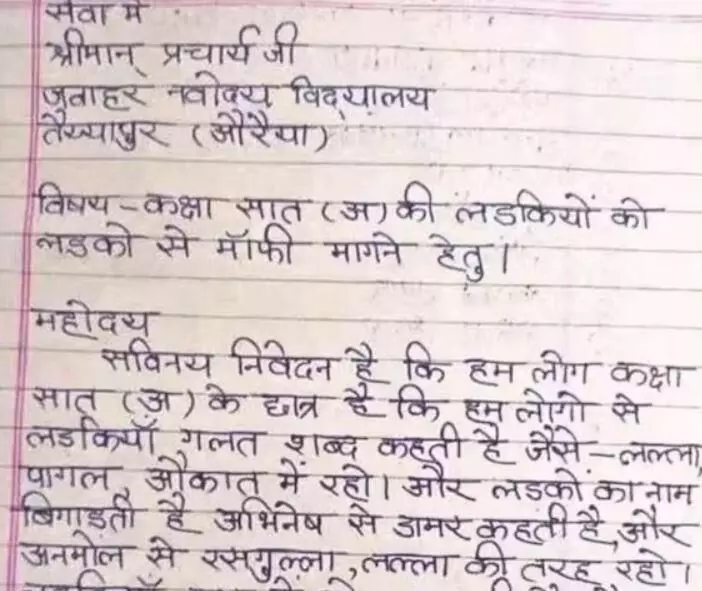 सेवा में
श्रीमान् प्रचार्य जी
जवाहर नवोदय विद्यालय
तैय्यापुर (औरैया)
विषय - कक्षा सात (अ) की लडकियों को
लडको से मॉफी मागने हेतु।
महोदय
सविनय निवेदन है कि हम लोग कक्षा
सात (अ) के छात्र है कि हम लोगो से
लडकियाँ गलत शब्द कहती है जैसे - लल्ला,
पागल, औकात में रहो। और लडकों का नाम
बिगाड़ती है अभिनेष से डामर कहती है, और
अनमोल से रसगुल्ला, लल्ला की तरह रहो।